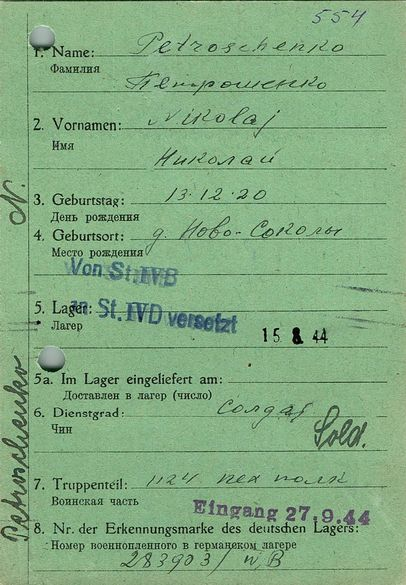 554
1. Name: Petroschenko
Фамилия Петрошенко
2. Vornamen: Nikolaj
Имя Николай
3. Geburtstag: 13.12.20
День рождения
4. Geburtsort: д. Ново-Соколы
Место рождения
Von St. IVB
5. Lager: in St. IVD versetzt
Лагерь 15 8. 44
5a. Im Lager eingeliefert am:
Доставлен в лагерь (число)
6. Dienstgrad: солдат
Чин Sold.
7. Truppenteil: 1124 пех полк
Воинская часть
Eingang 27.9.44
8. Nr. der Erkennungsmarke des deutschen Lagers:
Номер военнопленного в германском лагере
283903/ IVB
Petroschenko N.